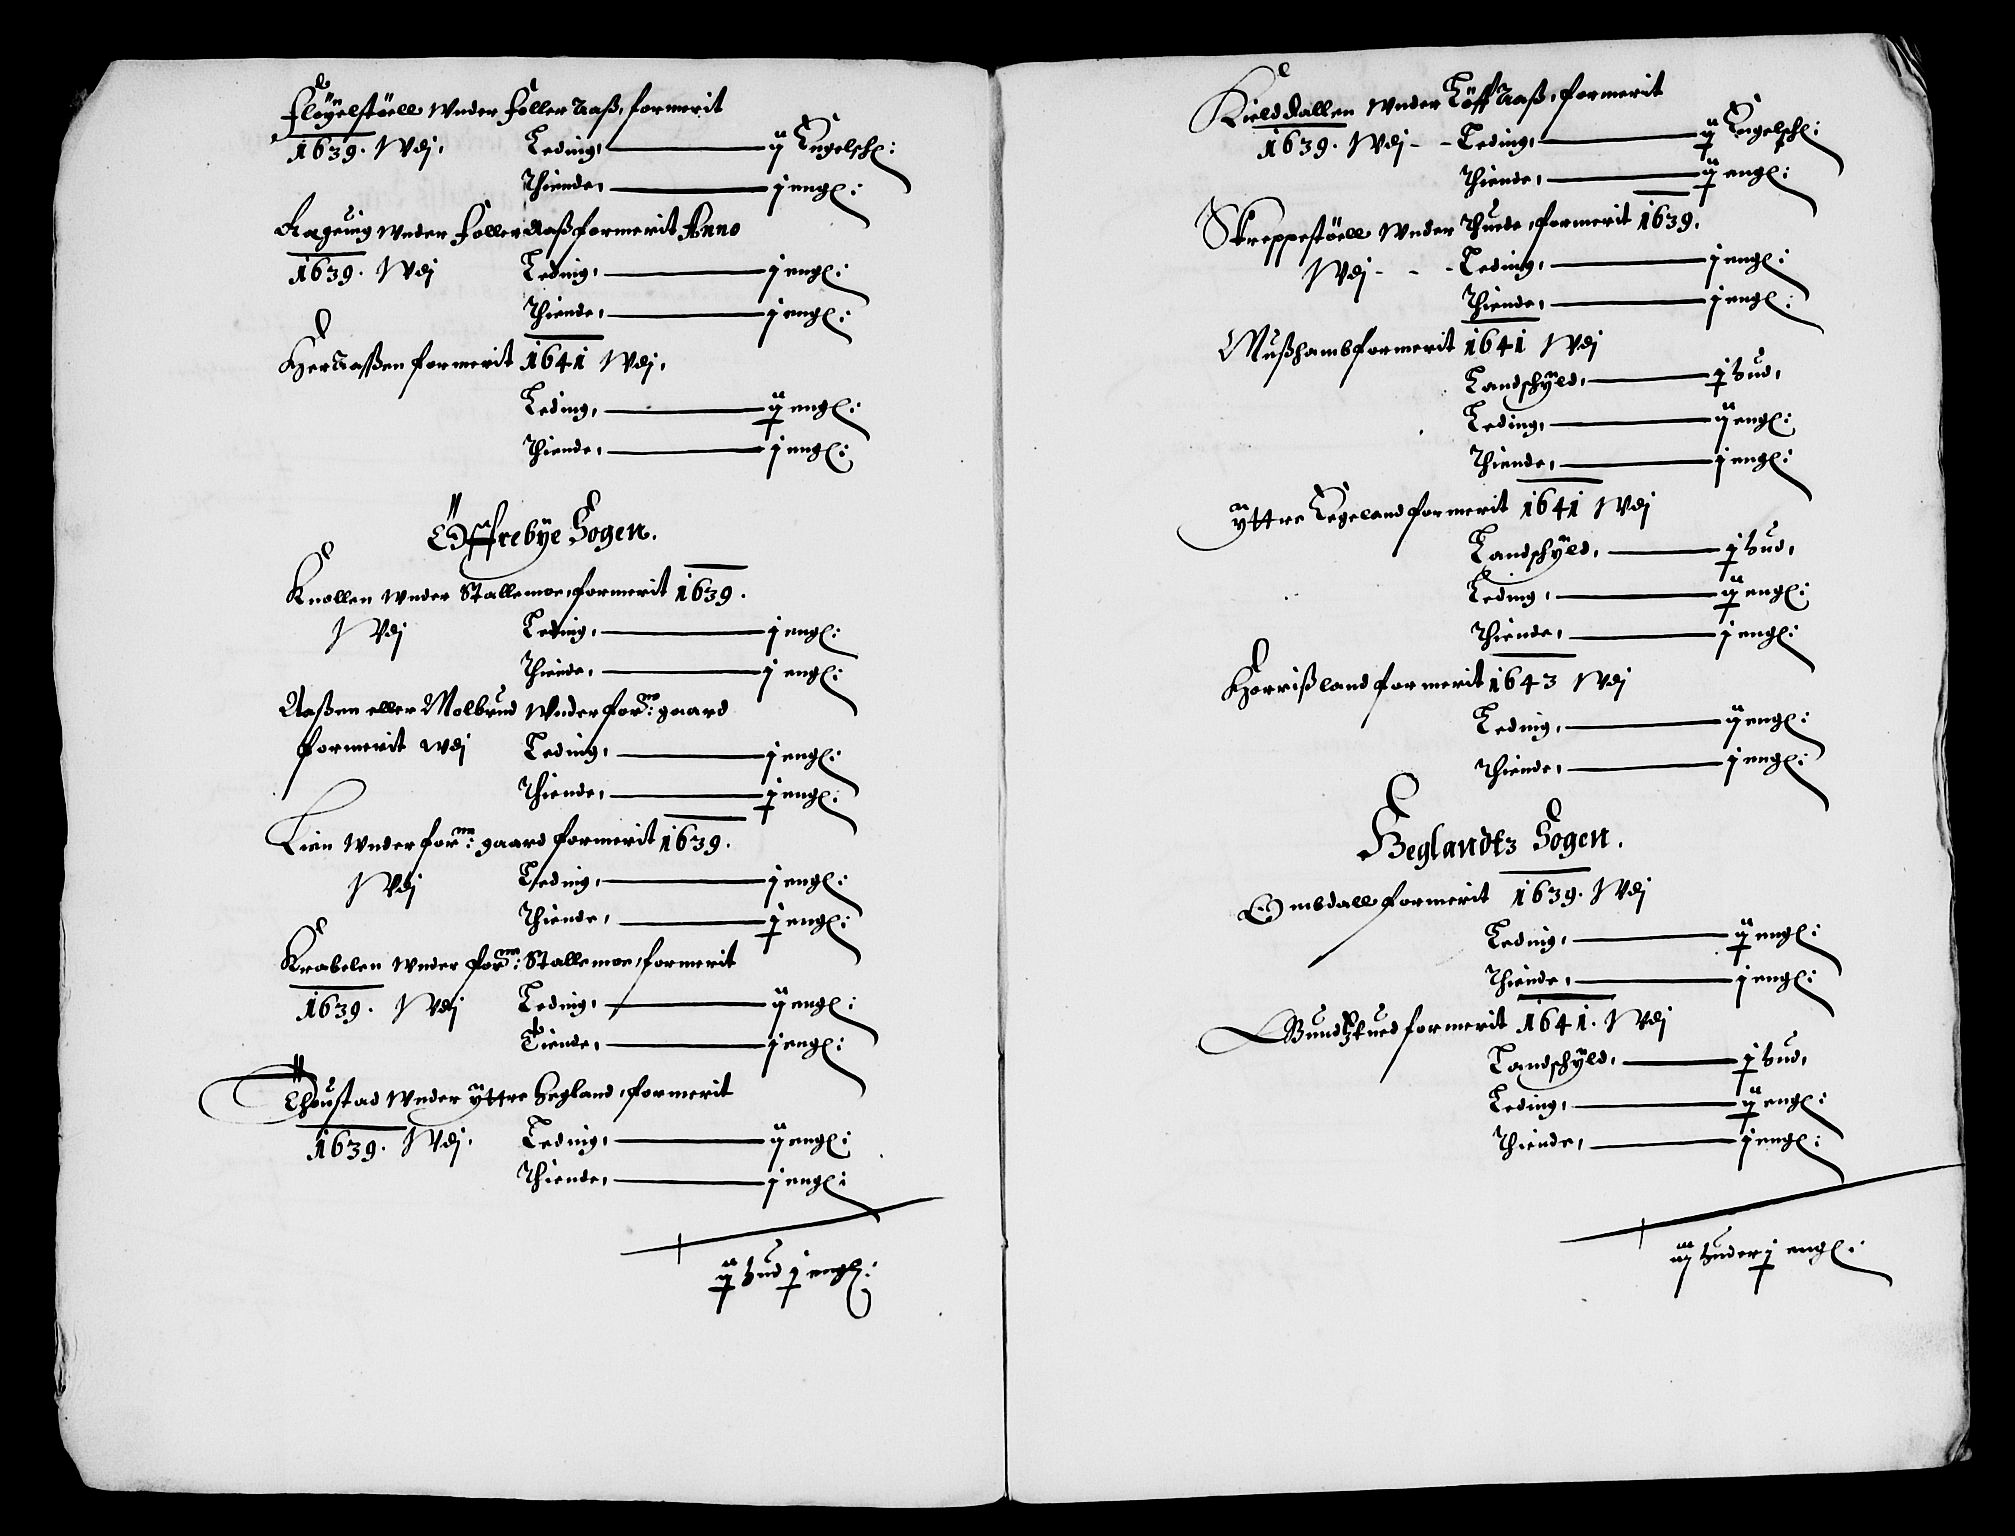 Fløyelstöell Wnder Foller Aaß, formerit
1639. Wdj, Leding, ij Engelsch:
Thiende, j engl:
Aageuig Wnder Foller Aaß formerit Anno
1639. Wdj Leding, j engl:
Thiende, j engl:
Her Aaßen formerit 1641 Wdj,
Leding, ij engl:
Thiende, j engl:
Öffrebÿe Sogen.
Knollen Wnder Stallemoe, formerit 1639.
Wdj Leding, j engl:
Thiende, j engl:
Aaßen eller Molbrud Wnder forne: gaard
formerit Wdj Leding, j engl:
Thiende, j engl:
Lien Wnder forne: gaard formerit 1639.
Wdj Leding, j engl:
Thiende, j engl:
Krabelen Wnder forne: Stallemoe, formerit
1639. Wdj Leding, ij engl:
Tiende, j engl:
Thoustad Wnder ÿttre Hegland, formerit
1639. Wdj, Leding, ij engl:
Thiende, j engl:
ij hud j engl:
Kield dallen Wnder Löff Aaß, formerit
1639. Wdj - - Leding, ij Engelsch:
Thiende, ij engl:
Skreppestöell Wnder Thuede, formerit 1639.
Wdj - - - Leding, j engl:
Thiende, j engl:
Mußhamb formerit 1641 Wdj
Landschÿld, j hud,
Leding, ij engl:
Thiende, j engl:
ÿttre Legeland formerit 1641 Wdj
Landschÿld, j hud,
Leding, ij engl:
Thiende, j engl:
Horrißland formerit 1643 Wdj
Leding, ij engl:
Thiende, j engl:
Heglandtz Sogen.
Ombdall formerit 1639. Wdj
Leding, ij engl:
Thiende, j engl:
Bundztued formerit 1641. Wdj
Landschÿld, j hud,
Leding, ij engl:
Thiende, j engl:
iij huder j engl: